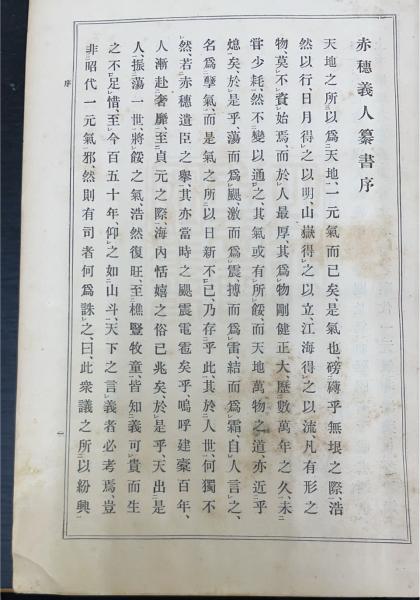 赤穗義人纂書序
天地之所以爲天地、一元氣而已矣、是氣也、磅礴乎無垠之際、浩
然以行、日月得之以明、山嶽得之以立、江海得之以流、凡有形之
物、莫不資始焉、而於人最厚、其爲物剛健正大、歷數萬年之久、未
甞少耗、然不變以通之、其氣或有所餒、而天地萬物之道、亦近乎
熄矣、於是乎、蕩而爲颶、激而爲震、搏而爲雷、結而爲霜、自人言之、
名爲孽氣、而是氣之所以日新不已、乃存乎此、其於人世、何獨不
然、若赤穗遺臣之擧、其亦當時之颶震電雹矣乎、嗚呼建櫜百年、
人漸赴奢靡、至貞元之際、海內恬嬉之俗已兆矣、於是乎、天出是
人、振蕩一世、將餒之氣、浩然復旺、至樵豎牧童、皆知義可貴而生
之不足惜、至今百五十年、仰之如山斗、天下之言義者必考焉、豈
非昭代一元氣邪、然則有司者何爲誅之、曰、此衆議之所以紛興
序
一